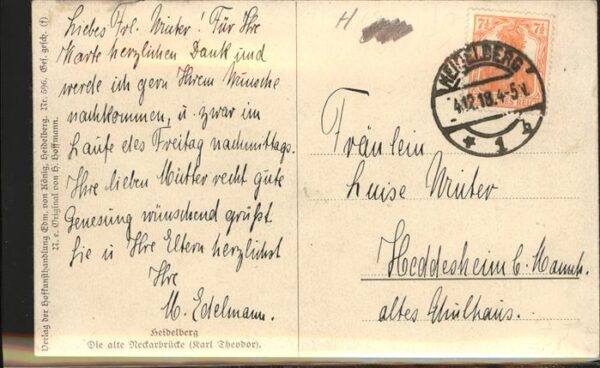 Verlag der Hofkunsthandlung Edm. von König, Heidelberg. Nr. 596. Ges. gesch. (f)
N. e. Original von H. Hoffmann.
Liebes Frl. Winter! Für Ihre
Karte herzlichen Dank und
werde ich gern Ihrem Wunsche
nachkommen, u. zwar im
Laufe des Freitag nachmittags.
Ihre lieben Mutter recht gute
Genesung wünschend grüßt
Sie u Ihre Eltern herzlichst
Ihre
M. Edelmann.
Heidelberg
Die alte Neckarbrücke (Karl Theodor).
H
7½ 7½
HEIDELBERG
4.12.18.4-5 N.
* 1 h
Fräulein
Luise Winter
Heddesheim b. Mannh.
altes Schulhaus.